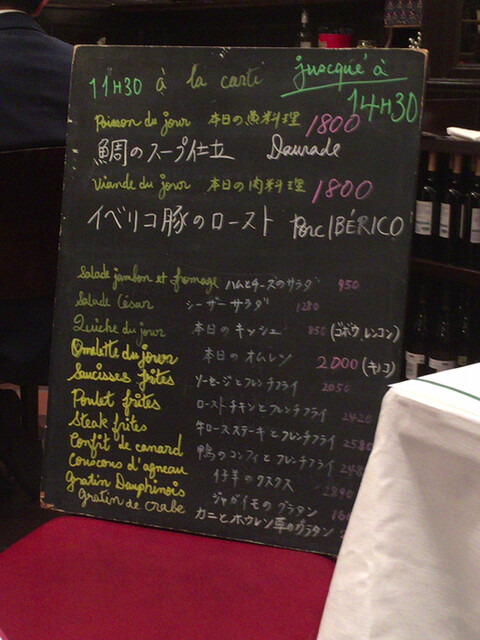 11H30 à la carte juscqué à 14H30
Poisson du jour 本日の魚料理 1800
鯛のスープ仕立 Daurade
Viande du jour 本日の肉料理 1800
イベリコ豚のロースト Porc IBÉRICO
Salade jambon et fromage ハムとチーズのサラダ 950
Salade César シーザーサラダ 1280
Quiche du jour 本日のキッシュ 850 (ゴボウ、レンコン)
Omelette du jour 本日のオムレツ 2000 (キノコ)
Saucisses frites ソーセージとフレンチフライ 2050
Poulet frites ローストチキンとフレンチフライ 2420
Steak frites 牛ロースステーキとフレンチフライ 2580
Confit de canard 鴨のコンフィとフレンチフライ
Couscous d'agneau 仔羊のクスクス 2890
Gratin Dauphinois ジャガイモのグラタン
Gratin de crabe カニとホウレン草のグラタン